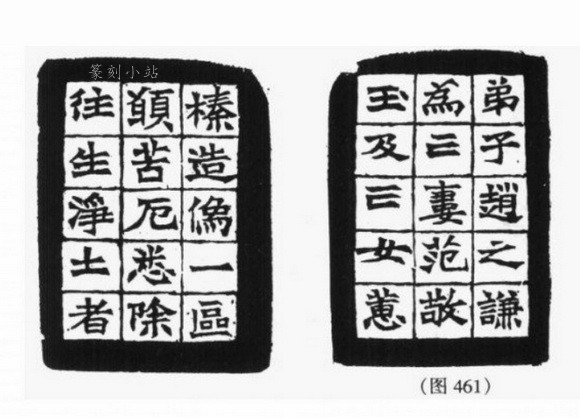 弟子趙之謙
為亡妻范敬
玉及亡女蕙
榛造像一區
願苦厄悉除
往生淨土者
篆刻小站
（图 461）